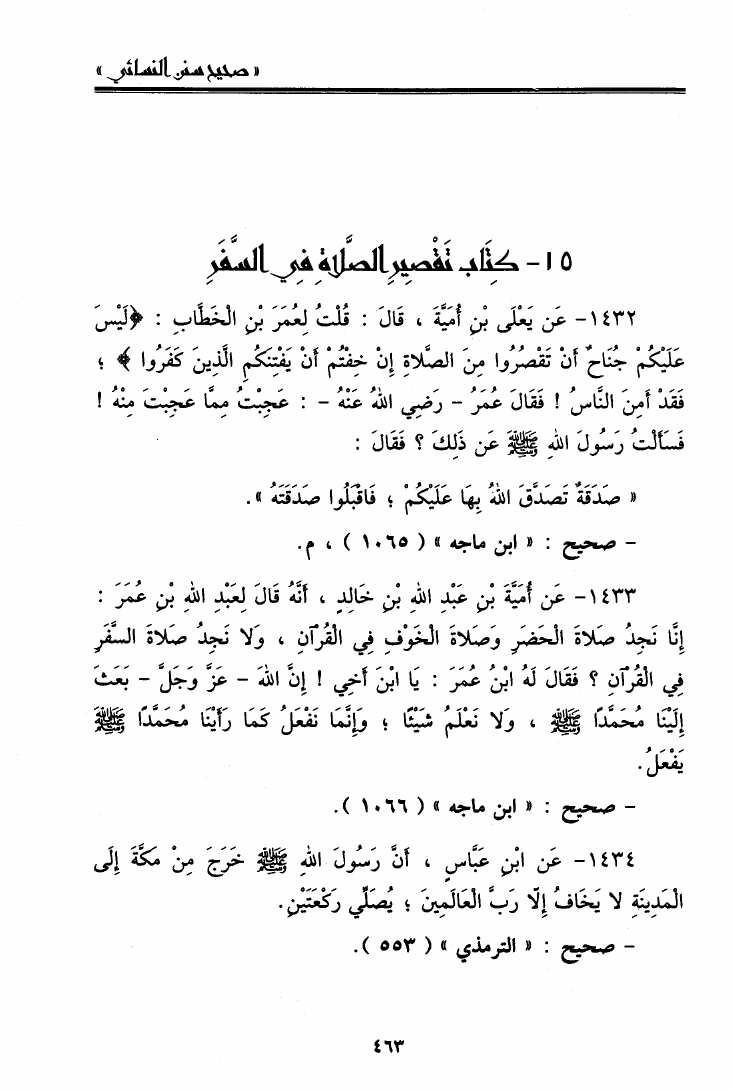 « صحيح سنن النسائي »
١٥- كِتَاب تَقْصِيرِ الصَّلاةِ فِي السَّفَرِ
١٤٣٢- عَن يَعْلَى بْنِ أُمَيَّةَ ، قَالَ : قُلْتُ لِعُمَرَ بْنِ الْخَطَّابِ : ﴿لَيْسَ
عَلَيْكُمْ جُنَاحٌ أَنْ تَقْصُرُوا مِنَ الصَّلاةِ إِنْ خِفْتُمْ أَنْ يَفْتِنَكُمِ الَّذِينَ كَفَرُوا ﴾ ؛
فَقَدْ أَمِنَ النَّاسُ ! فَقَالَ عُمَرُ - رَضِي اللهُ عَنْهُ - : عَجِبْتُ مِمَّا عَجِبْتَ مِنْهُ !
فَسَأَلْتُ رَسُولَ اللهِ ﷺ عَن ذَلِكَ ؟ فَقَالَ :
« صَدَقَةٌ تَصَدَّقَ اللهُ بِهَا عَلَيْكُمْ ؛ فَاقْبَلُوا صَدَقَتَهُ ».
- صحيح : « ابن ماجه » ( ١٠٦٥ ) ، م.
١٤٣٣- عَن أُمَيَّةَ بْنِ عَبْدِ اللهِ بْنِ خَالِدٍ ، أَنَّهُ قَالَ لِعَبْدِ اللهِ بْنِ عُمَرَ :
إِنَّا نَجِدُ صَلاةَ الْحَضَرِ وَصَلاةَ الْخَوْفِ فِي الْقُرْآنِ ، وَلا نَجِدُ صَلاةَ السَّفَرِ
فِي الْقُرْآنِ ؟ فَقَالَ لَهُ ابْنُ عُمَرَ : يَا ابْنَ أَخِي ! إِنَّ اللهَ - عَزَّ وَجَلَّ - بَعَثَ
إِلَيْنَا مُحَمَّدًا ﷺ ، وَلا نَعْلَمُ شَيْئًا ؛ وَإِنَّمَا نَفْعَلُ كَمَا رَأَيْنَا مُحَمَّدًا ﷺ
يَفْعَلُ.
- صحيح : « ابن ماجه » ( ١٠٦٦ ).
١٤٣٤- عَن ابْنِ عَبَّاسٍ ، أَنَّ رَسُولَ اللهِ ﷺ خَرَجَ مِنْ مَكَّةَ إِلَى
الْمَدِينَةِ لا يَخَافُ إِلّا رَبَّ الْعَالَمِينَ ؛ يُصَلِّي رَكْعَتَيْنِ.
- صحيح : « الترمذي » ( ٥٥٣ ).
٤٦٣